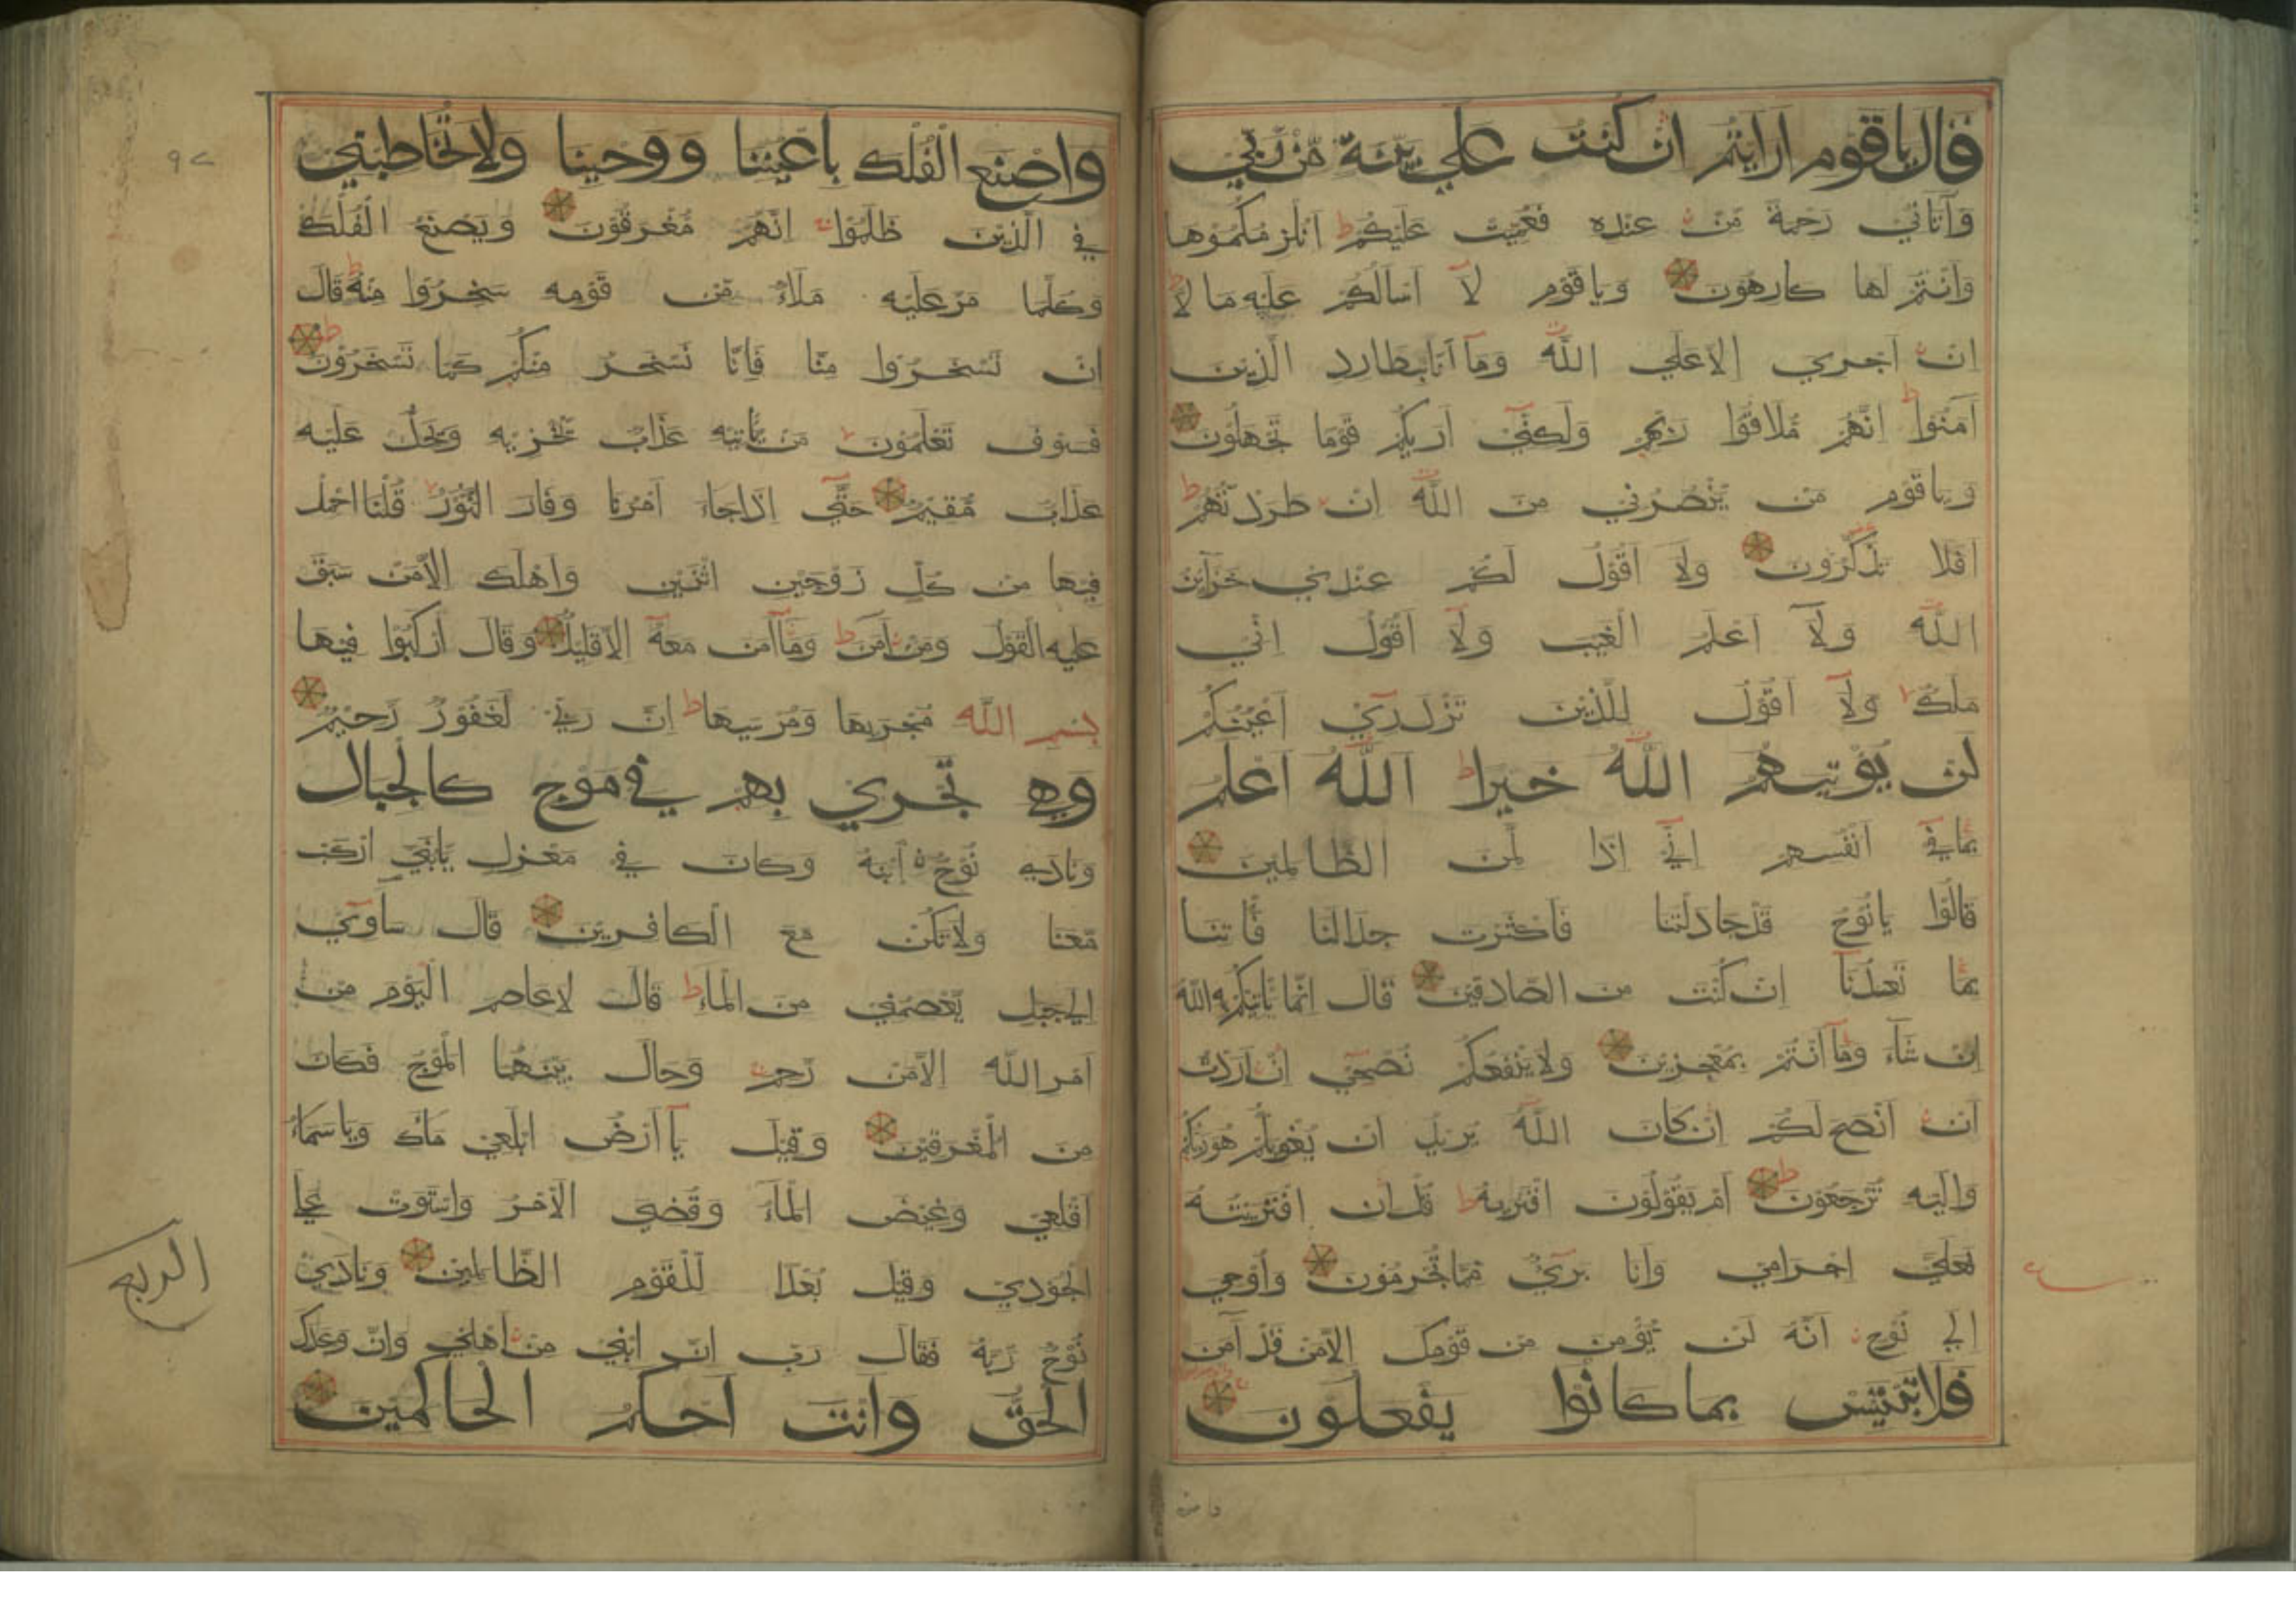 قال ياقوم ارايتم ان كنت علي بينة من ربي
وآتاني رحمة من عنده فعميت عليكم ط انلزمكموها
وانتم لها كارهون وياقوم لآ اسالكم عليه مالا ط
ان اجري الاعلي الله ومآ انا بطارد الذين
آمنوا ط انهم ملاقوا ربهم ولكني اريكم قوما تجهلون
وياقوم من ينصرني من الله ان طردتهم ط
افلا تذكرون ولآ اقول لكم عندي خزآين
الله ولآ اعلم الغيب ولآ اقول اني
ملك ولآ اقول للذين تزدري اعينكم
لن يؤتيهم الله خيرا ط الله اعلم
بما في انفسهم اني اذا لمن الظالمين
قالوا يانوح قد جادلتنا فاكثرت جدالنا فاتنا
بما تعدنآ ان كنت من الصادقين قال انما ياتيكم به الله
ان شآء ومآ انتم بمعجزين ولا ينفعكم نصحي ان اردت
ان انصح لكم ان كان الله يريد ان يغويكم هو ربكم
واليه ترجعون ط ام يقولون افتريه ط قل ان افتريته
فعلي اجرامي وانا بريء مما تجرمون واوحي
الي نوح انه لن يؤمن من قومك الا من قد آمن
فلا تبتئس بما كانوا يفعلون
واصنع الفلك باعيننا ووحينا ولا تخاطبني
في الذين ظلموا انهم مغرقون ويصنع الفلك
وكلما مر عليه ملاء من قومه سخروا منه ط قال
ان تسخروا منا فانا نسخر منكم كما تسخرون ط
فسوف تعلمون من ياتيه عذاب يخزيه ويحل عليه
عذاب مقيم حتي اذا جاء امرنا وفار التنور قلنا احمل
فيها من كل زوجين اثنين واهلك الا من سبق
عليه القول ومن آمن ط ومآ آمن معه الا قليل وقال اركبوا فيها
بسم الله مجريها ومرسيها ط ان ربي لغفور رحيم
وهي تجري بهم في موج كالجبال
ونادي نوح ابنه وكان في معزل يابني اركب
معنا ولا تكن مع الكافرين قال سآوي
الي جبل يعصمني من المآء ط قال لا عاصم اليوم من
امر الله الا من رحم وحال بينهما الموج فكان
من المغرقين وقيل يآ ارض ابلعي ماءك وياسماء
اقلعي وغيض المآء وقضي الامر واستوت علي
الجودي وقيل بعدا للقوم الظالمين ونادي
نوح ربه فقال رب ان ابني من اهلي وان وعدك
الحق وانت احكم الحاكمين
الربع